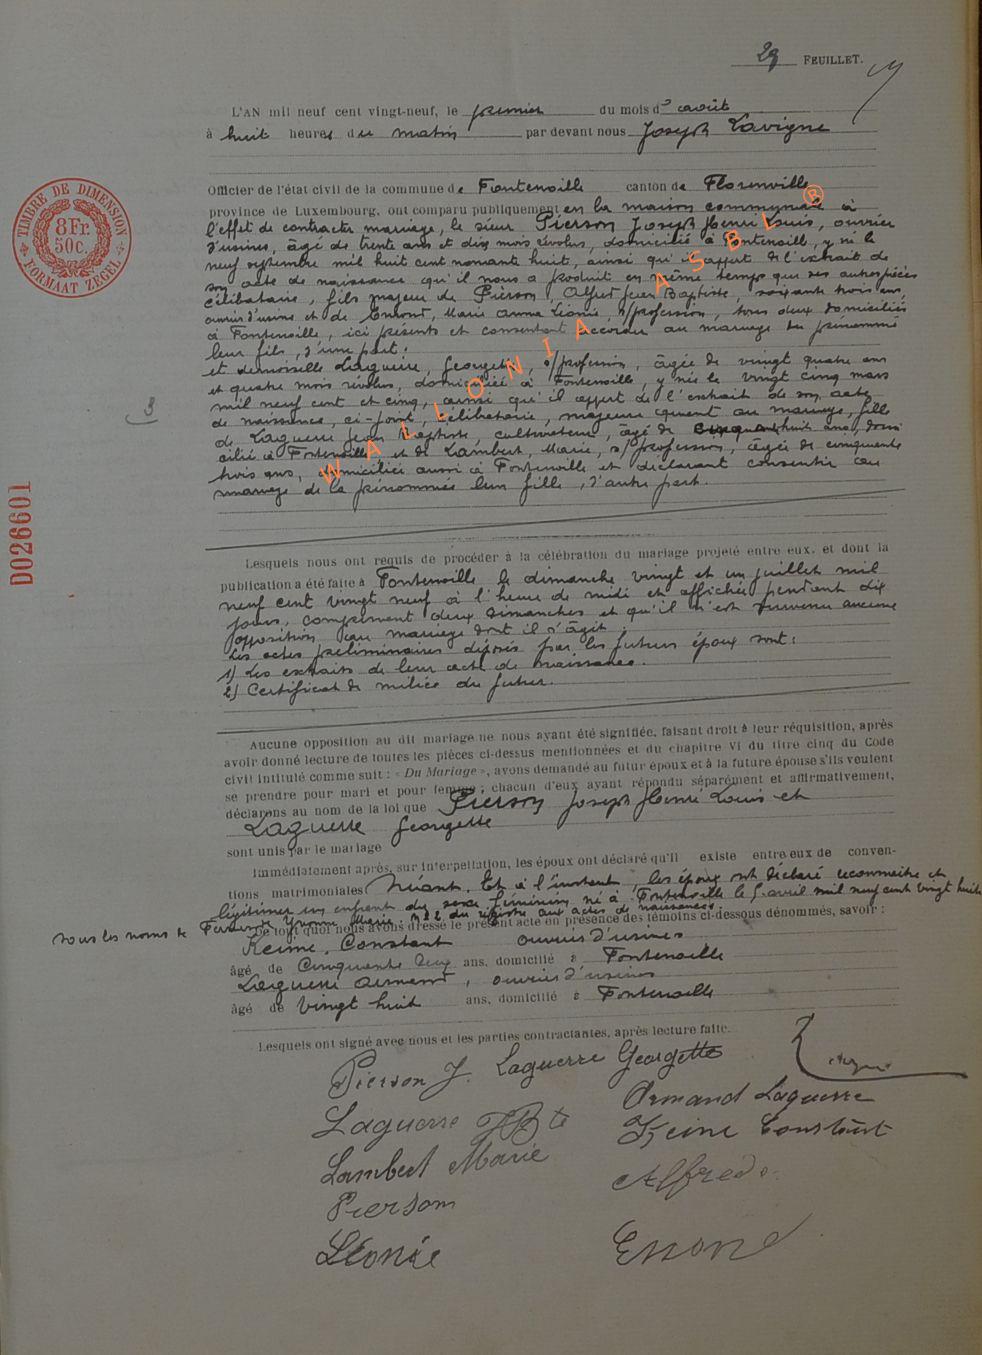 29 FEUILLET.
L'AN mil neuf cent vingt-neuf, le premier du mois d'août
à huit heures du matin par devant nous Joseph Lavigne
TIMBRE DE DIMENSION
8 Fr.
50 C.
FORMAAT ZEGEL
Officier de l'état civil de la commune de Fontenoille canton de Florenville
province de Luxembourg, ont comparu publiquement en la maison communale à
l'effet de contracter mariage, le sieur Pierson Joseph Henri Louis, ouvrier
d'usines, âgé de trente ans et dix mois révolus, domicilié à Fontenoille, y né le
neuf septembre mil huit cent nonante huit, ainsi qu'il appert de l'extrait de
son acte de naissance qu'il nous a produit en même temps que ses autres pièces
célibataire, fils majeur de Pierson, Alfred Jean Baptiste, soixante trois ans,
ouvrier d'usine et de Emond, Marie Anna Léonie, s/profession, tous deux domiciliés
à Fontenoille, ici présents et consentant accorder au mariage du prénommé
leur fils, d'une part.
et demoiselle Laguerre, Georgette, s/profession, âgée de vingt quatre ans
et quatre mois révolus, domiciliée à Fontenoille, y née le vingt cinq mars
mil neuf cent et cinq, ainsi qu'il appert de l'extrait de son acte
de naissance, ci-joint, célibataire, majeure quant au mariage, fille
de Laguerre Jean Baptiste, cultivateur, âgé de cinquante huit ans, domi
cilié à Fontenoille et de Lambert, Marie, s/profession, âgée de cinquante
trois ans, domiciliée aussi à Fontenoille et déclarant consentir au
mariage de la prénommée leur fille, d'autre part.
WALLONIA ASBL ®
D026601
Lesquels nous ont requis de procéder à la célébration du mariage projeté entre eux, et dont la
publication a été faite à Fontenoille le dimanche vingt et un juillet mil
neuf cent vingt neuf à l'heure de midi et affichée pendant dix
jours, comprenant deux dimanches et qu'il n'est survenu aucune
opposition au mariage dont il s'agit.
Les actes préliminaires déposés par les futurs époux sont :
1) Les extraits de leur acte de naissance.
2) Certificat de milice du futur.
Aucune opposition au dit mariage ne nous ayant été signifiée, faisant droit à leur réquisition, après
avoir donné lecture de toutes les pièces ci-dessus mentionnées et du chapitre VI du titre cinq du Code
civil intitulé comme suit : « Du Mariage », avons demandé au futur époux et à la future épouse s'ils veulent
se prendre pour mari et pour femme ; chacun d'eux ayant répondu séparément et affirmativement,
déclarons au nom de la loi que Pierson Joseph Henri Louis et
Laguerre Georgette
sont unis par le mariage
Immédiatement après, sur interpellation, les époux ont déclaré qu'il existe entre eux de conven-
tions matrimoniales Néant. Et à l'instant, les époux ont déclaré reconnaître et
légitimer un enfant du sexe féminin né à Fontenoille le 5 avril mil neuf cent vingt huit
sous les noms de Yvonne Marie. N° 2 du registre aux actes de naissances.
De tout quoi nous avons dressé le présent acte en présence des témoins ci-dessous dénommés, savoir :
Keime, Constant ouvrier d'usines
âgé de Cinquante deux ans, domicilié à Fontenoille
Laguerre Armand, ouvrier d'usines
âgé de vingt huit ans, domicilié à Fontenoille
Lesquels ont signé avec nous et les parties contractantes, après lecture faite.
Pierson J. Laguerre Georgette
Laguerre JBte Armand Laguerre
Lambert Marie Keime Constant
Pierson Alfred
Léonie Emond